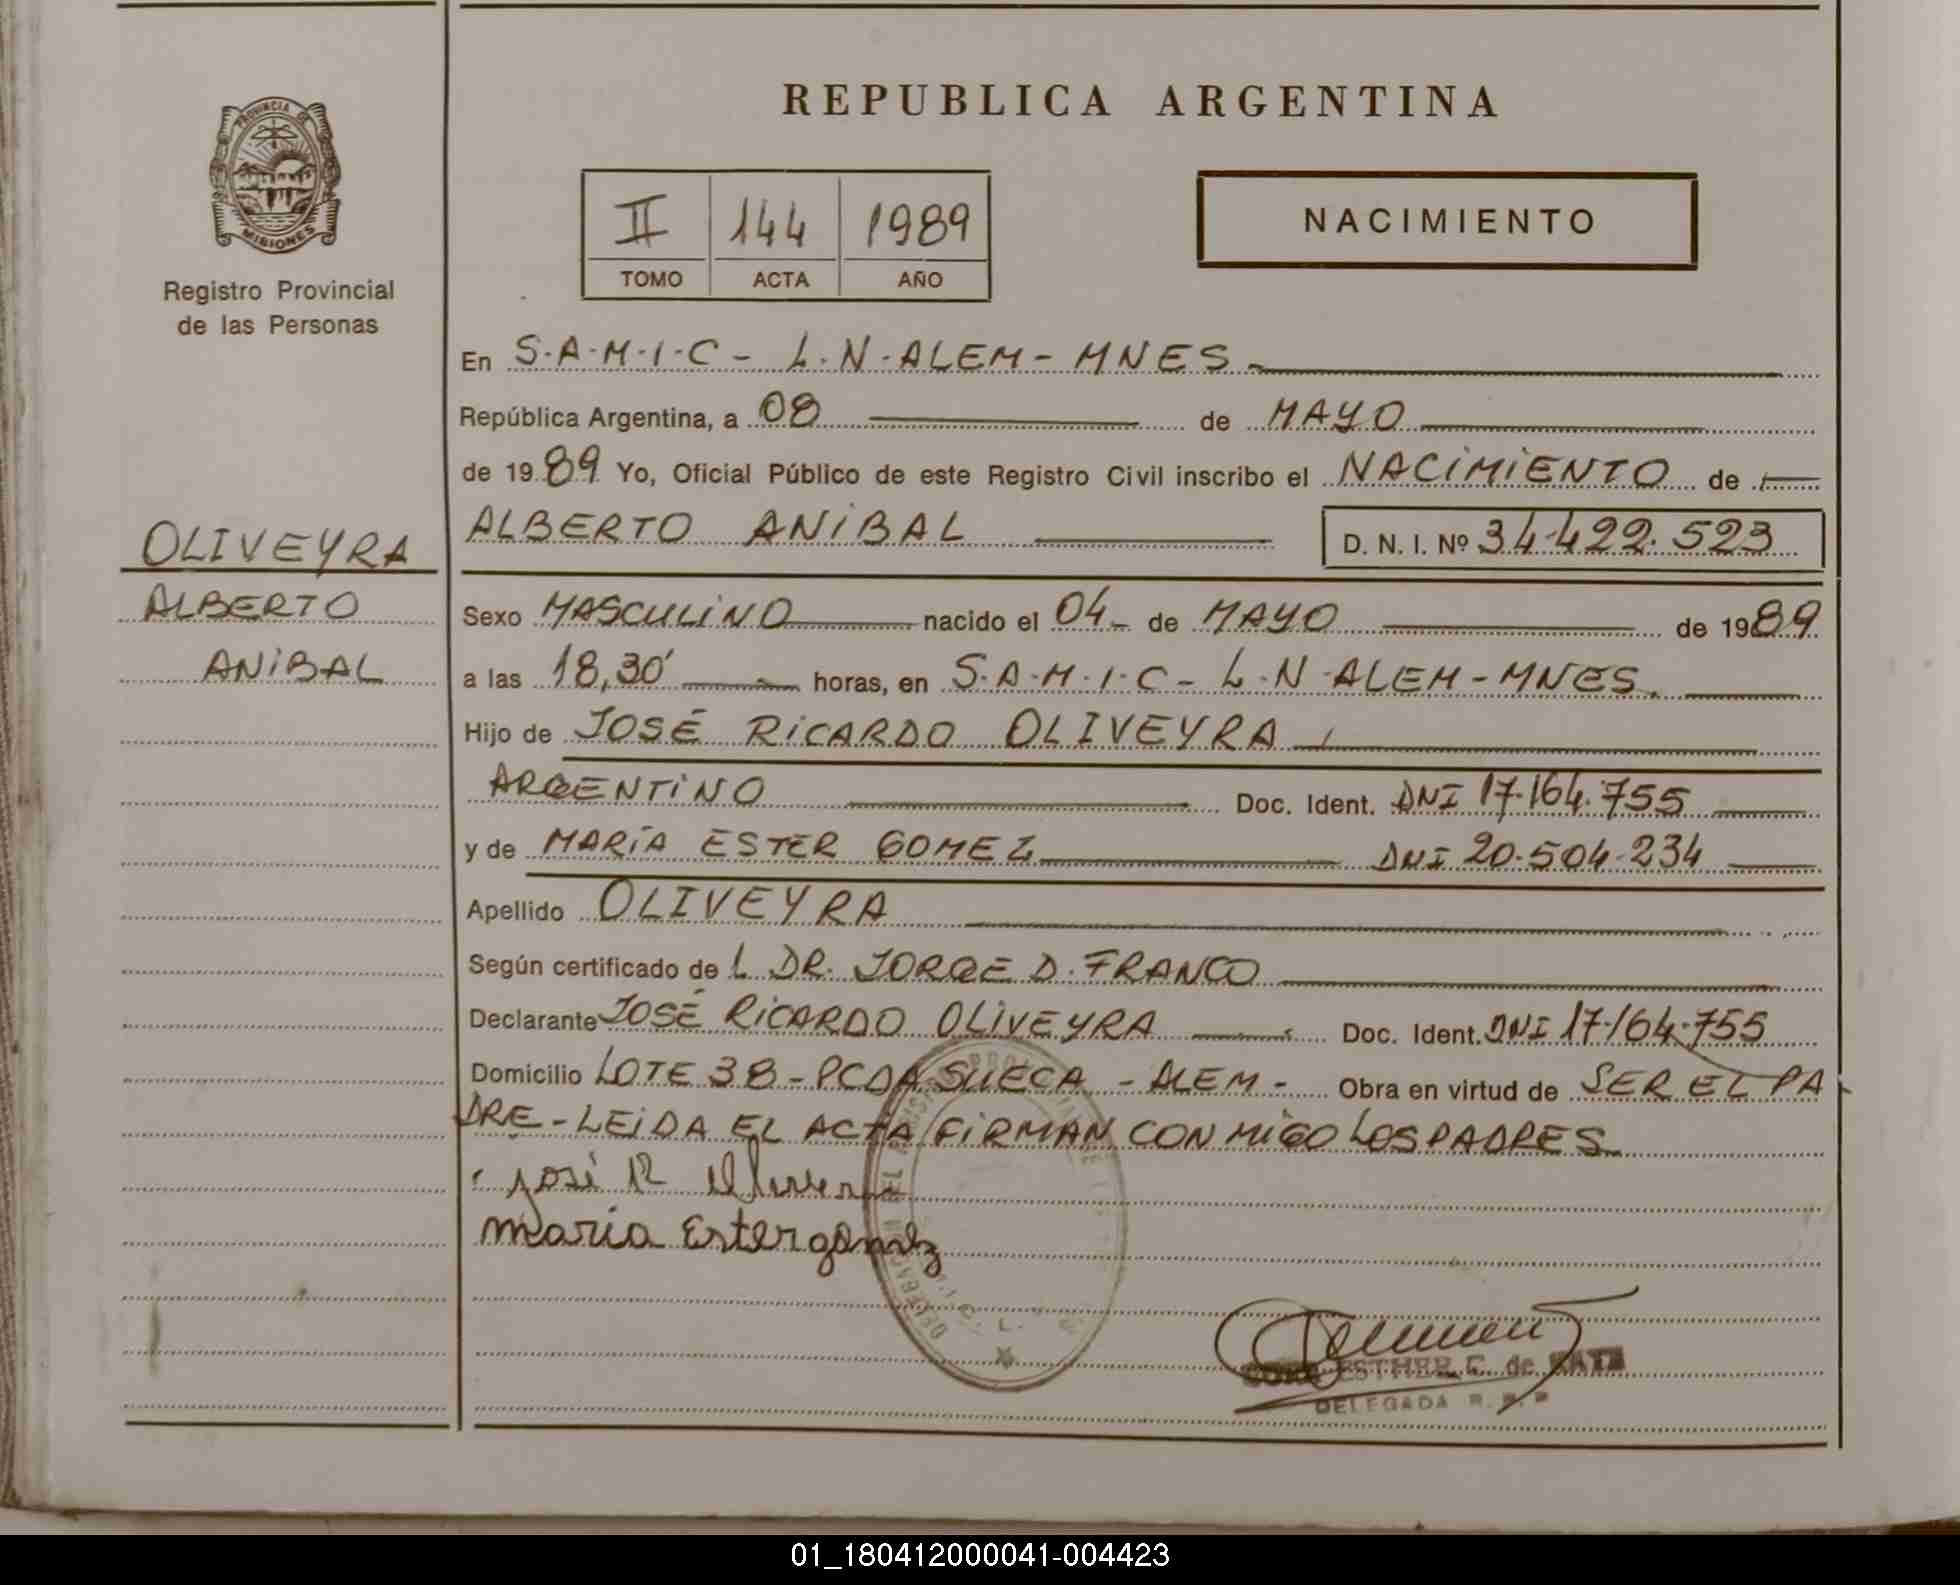 REPUBLICA ARGENTINA
PROVINCIA DE
MISIONES
Registro Provincial
de las Personas
II 144 1989
TOMO ACTA AÑO
NACIMIENTO
En S.A.M.I.C - L.N.ALEM - MNES -
República Argentina, a 08 de MAYO
de 1989 Yo, Oficial Público de este Registro Civil inscribo el NACIMIENTO de
ALBERTO ANIBAL D. N. I. Nº 34.422.523
OLIVEYRA
ALBERTO
ANIBAL
Sexo MASCULINO nacido el 04 - de MAYO de 1989
a las 18,30' horas, en S.A.M.I.C - L.N.ALEM - MNES.
Hijo de JOSÉ RICARDO OLIVEYRA
ARGENTINO Doc. Ident. DNI 17.164.755
y de MARÍA ESTER GOMEZ DNI 20.504.234
Apellido OLIVEYRA
Según certificado de L DR. JORGE D. FRANCO
Declarante JOSÉ RICARDO OLIVEYRA Doc. Ident. DNI 17.164.755
Domicilio LOTE 38 - PCDA SUECA - ALEM - Obra en virtud de SER EL PA
DRE - LEIDA EL ACTA FIRMAN CONMIGO LOS PADRES
José R
maria Ester gomez
ESTHER C. de
DELEGADA R. P. P
01_180412000041-004423